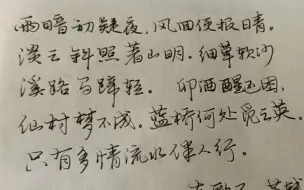 雨暗初疑夜,风回便报晴。
淡云斜照著山明。细草软沙
溪路马蹄轻。 卯酒醒还困,
仙村梦不成。蓝桥何处觅云英。
只有多情流水伴人行。